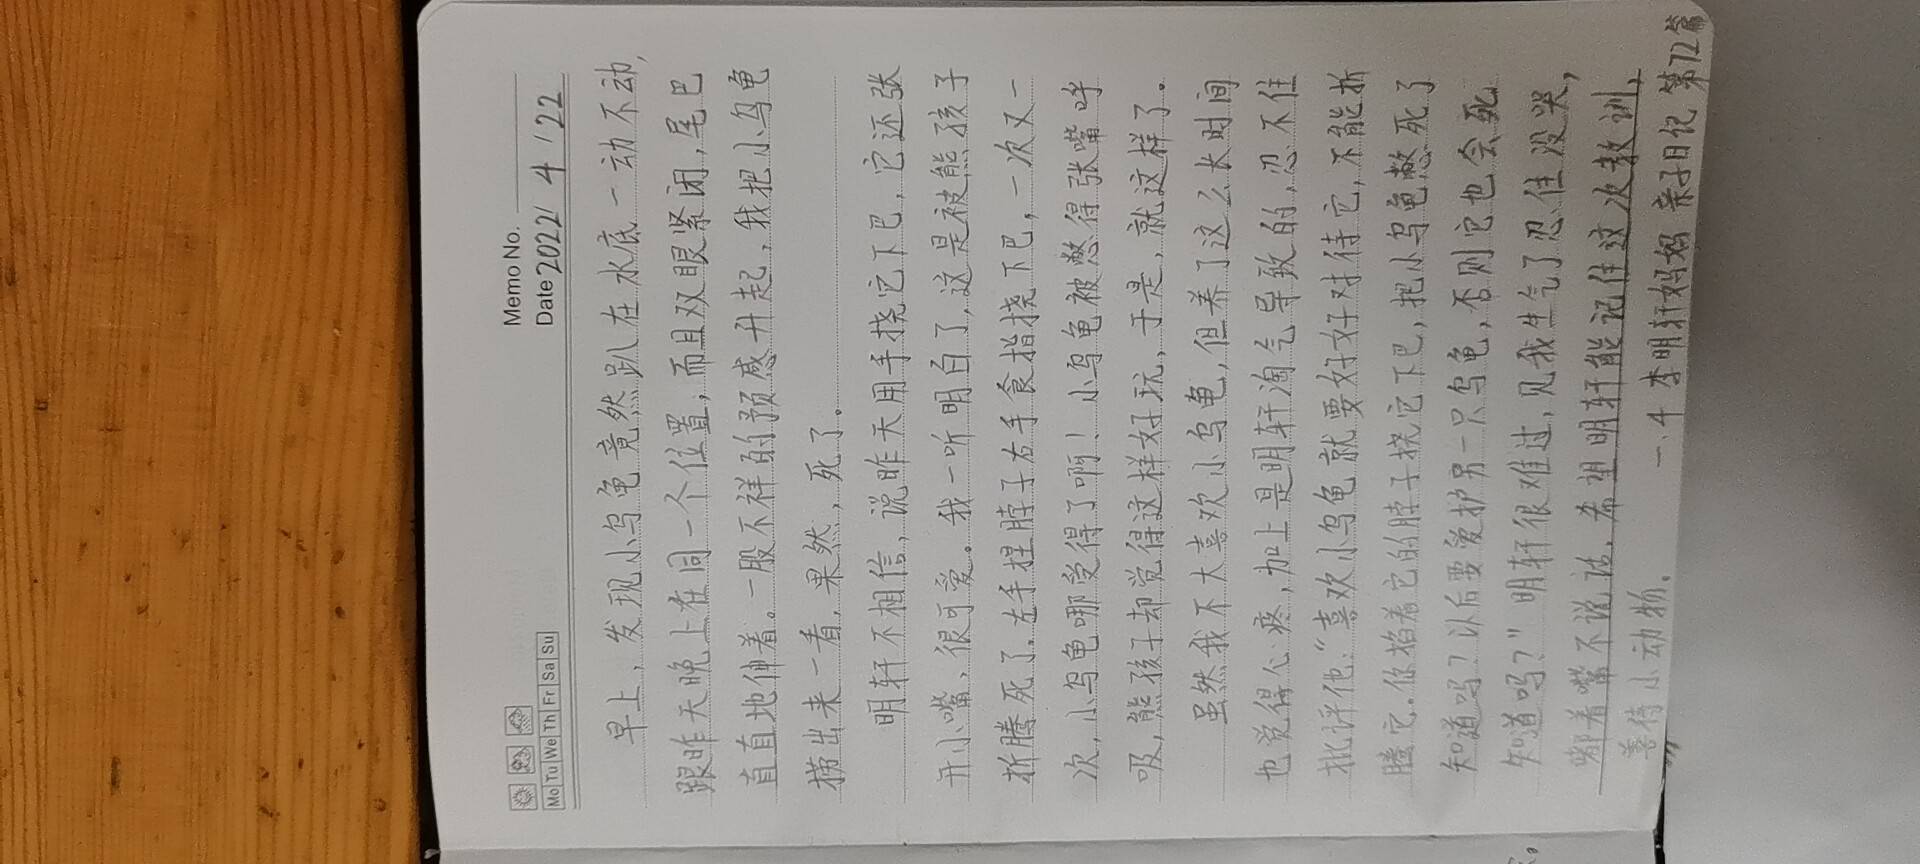 Memo No.
Mo Tu We Th Fr Sa Su
Date 2022/ 4 / 22
早上，发现小乌龟竟然趴在水底一动不动，
跟昨天晚上在同一个位置，而且双眼紧闭，尾巴
直直地伸着。一股不祥的预感升起，我把小乌龟
捞出来一看，果然，死了。
明轩不相信，说昨天用手挠它下巴，它还张
开小嘴，很可爱。我一听明白了，这是被熊孩子
折腾死了。左手捏脖子右手食指挠下巴，一次又一
次，小乌龟哪受得了啊！小乌龟被憋得张嘴呼
吸，熊孩子却觉得这样好玩，于是，就这样了。
虽然我不大喜欢小乌龟，但养了这么长时间
也觉得心疼，加上是明轩淘气导致的，忍不住
批评他：“喜欢小乌龟就要好好对待它，不能折
腾它。你掐着它的脖子挠它下巴，把小乌龟憋死了
知道吗？以后要爱护另一只乌龟，否则它也会死
知道吗？”明轩很难过，见我生气了忍住没哭，
嘟着嘴不说话，希望明轩能记住这次教训，
善待小动物。
一.4 李明轩妈妈 亲子日记 第72篇